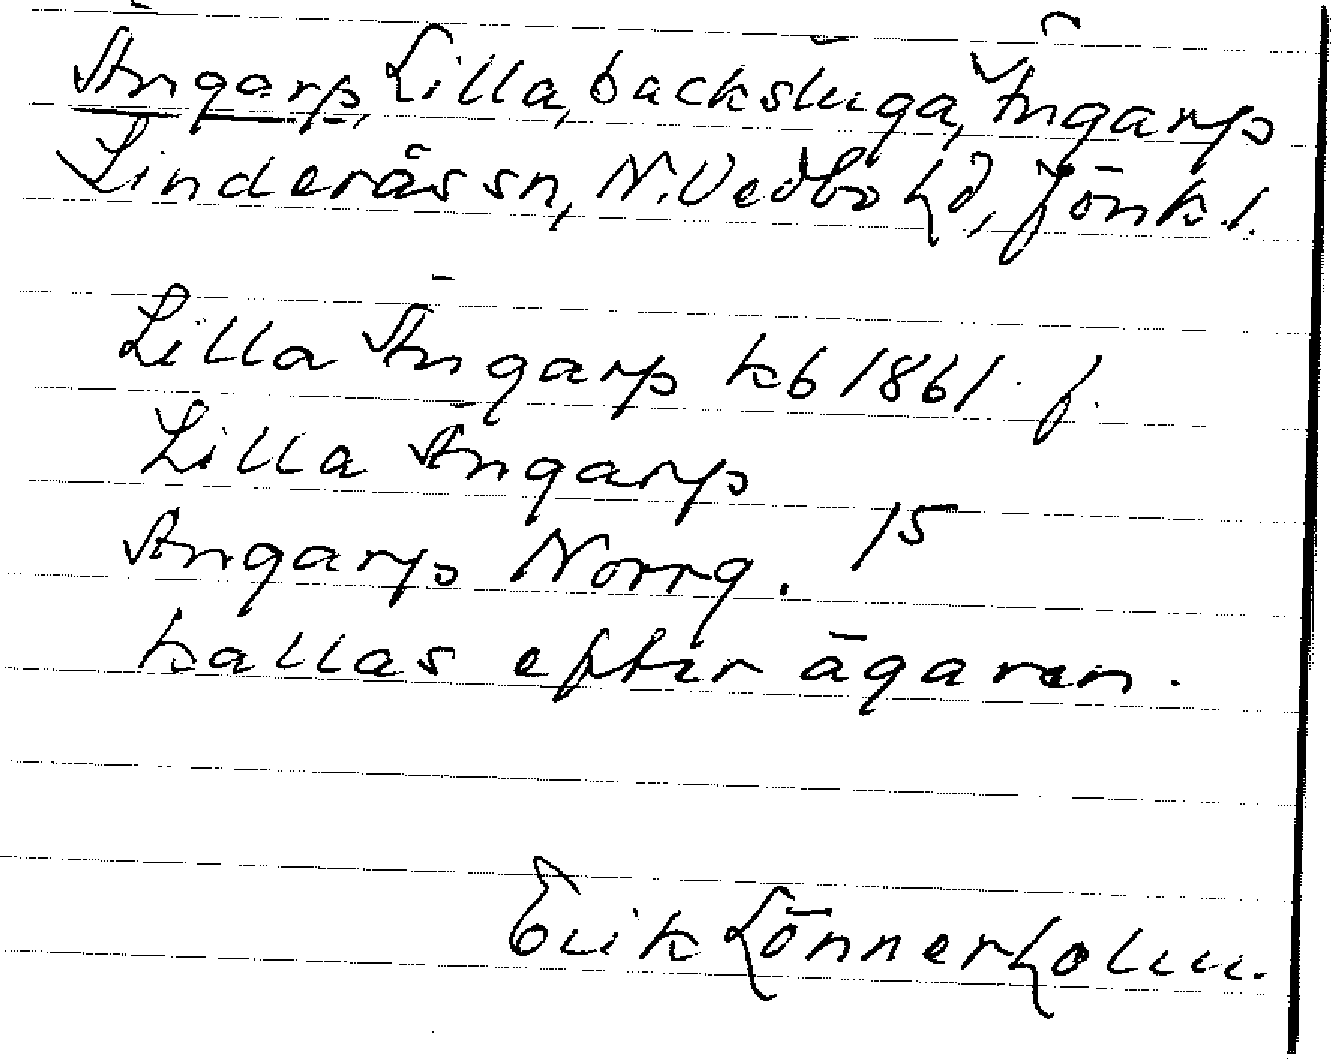 Ängarp, Lilla, backstuga, Ängarp
Linderås sn, N. Vedbo hd, Jönk. l.
Lilla Ängarp kb 1861 f.
Lilla Ängarp
Ängarp Norrg. 15
kallas efter ägaren.
Erik Lönnerholm.